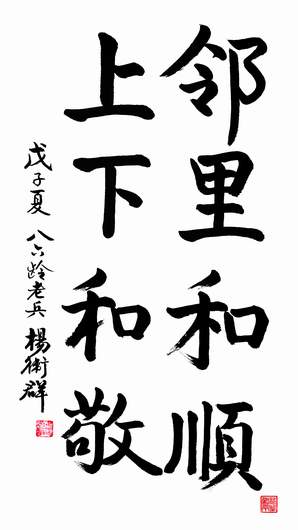 邻里和順
上下和敬
戊子夏 八六龄老兵 楊衛群